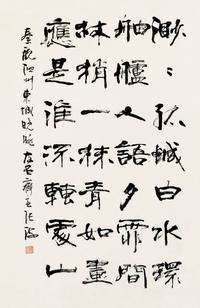 渺〻孤城白水環
舳艫人語夕霏間
林梢一抹青如畫
應是淮流轉處山
秦觀泗州東城晚眺